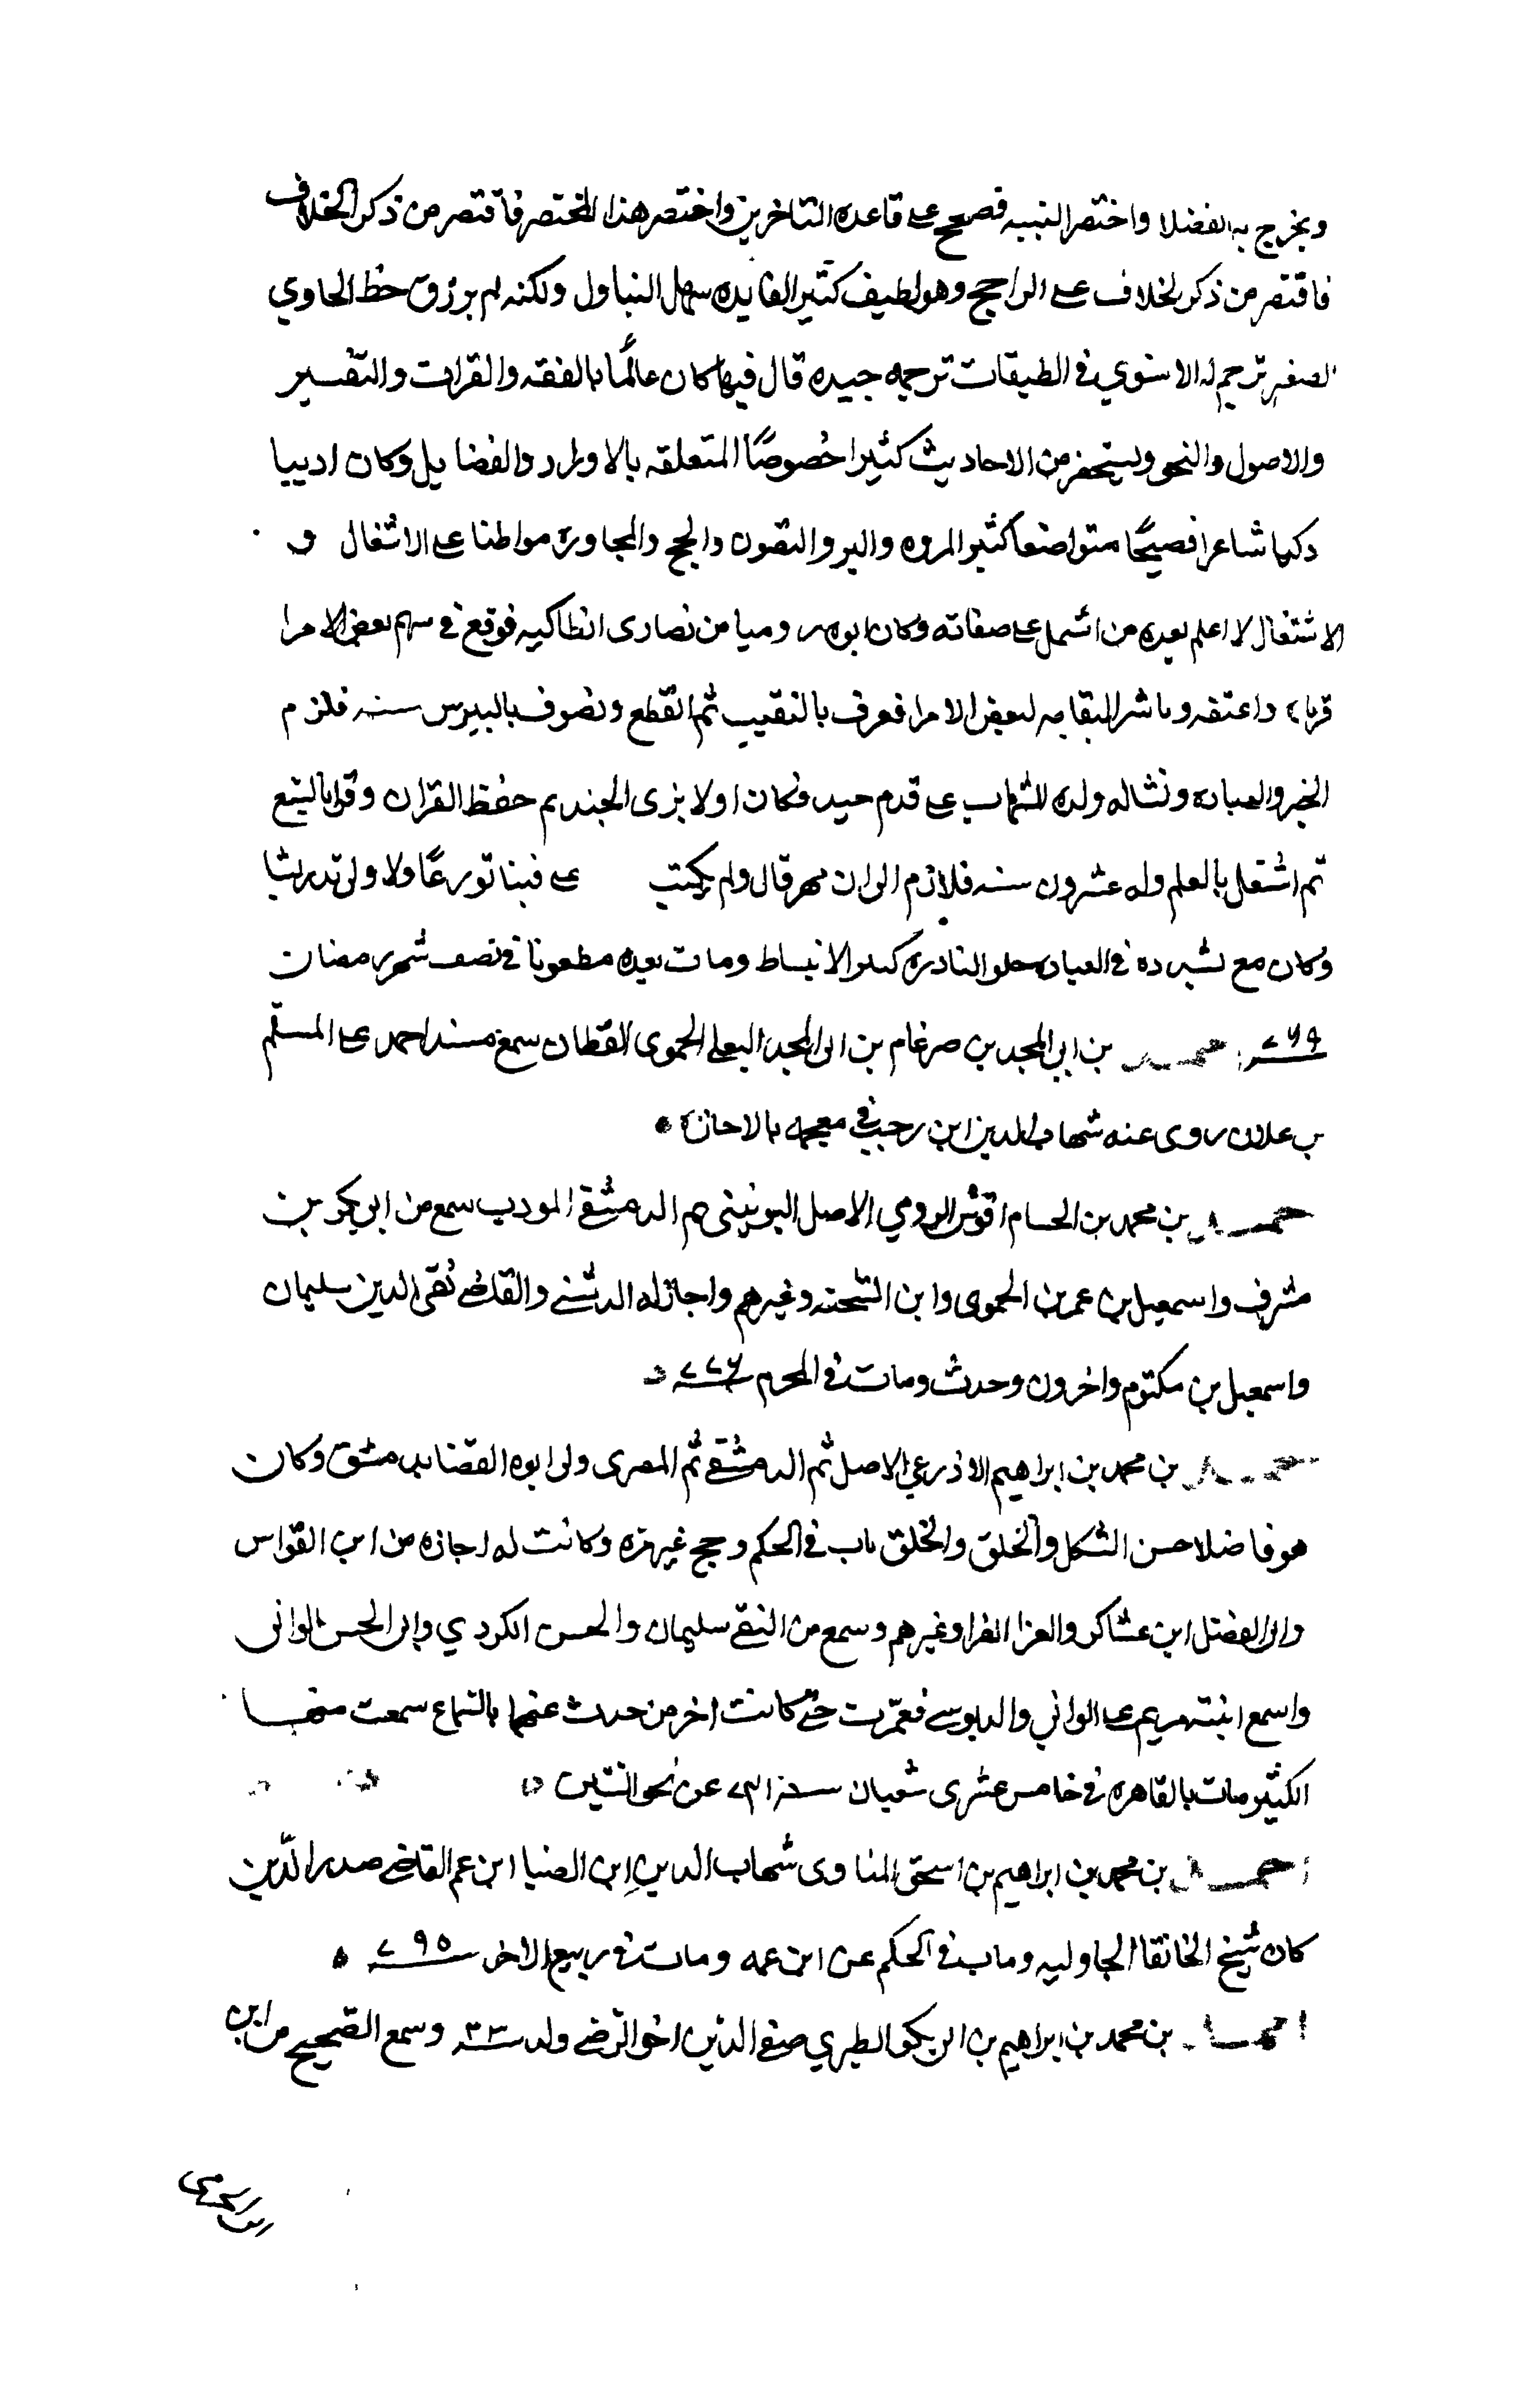 وتخرج به الفضلا واختصر التنبيه فصحح على قاعده المتاخرين واختصر هذا المختصر فاقتصر من ذكر الخلاف
فاقتصر من ذكر الخلاف على الراجح وهو لطيف كثير الفايده سهل التناول ولكنه لم يرزق حظ الحاوي
الصغير ترجم له الاسنوي في الطبقات ترجمه جيده قال فيها كان عالمًا بالفقه والقرات والتفسير
والاصول والنحو ويستحضر من الاحاديث كثيرا خصوصًا المتعلقه بالاوراد والفضايل وكان اديبا
ذكيا شاعرا فصيحًا متواضعا كثير المروه والبر والتصون والحج والمجاورة مواظبا على الاشغال و
الاشتغال لا اعلم بعده من اشتمل على صفاته وكان ابوه روميا من نصارى انطاكيه فوقع في سهم بعض الامرا
فرباه واعتقه وباشر النقابه لبعض الامرا فعرف بالنقيب ثم انقطع وتصوف بالبيبرسيه فلزم
الخير والعباده ونشا له ولده الشهاب على قدم جيد وكان اولا بزى الجند ثم حفظ القران وقرا بالسبع
ثم اشتغل بالعلم وله عشرون سنه فلازم الى ان مهر قال ولم يكتب على فتيا تورعًا ولا ولى تدريسا
وكان مع تشدده في العباده حلو النادره كثير الانبساط ومات بعده مطعونا في نصف شهر رمضان
سنه ٧٦٩ احمد بن ابي المجد بن ضرغام بن ابى المجد البعلى الحموى القطان سمع مسند احمد على المسلم
بن علان روى عنه شهاب الدين ابن رجب في معجمه بالاجازه
احمد بن محمد بن الحسام اقوش الرومي الاصل اليونينى ثم الدمشقي المودب سمع من ابي بكر بن
مشرف واسمعيل بن عمر بن الحموى وابن الشحنه وغيرهم واجاز له الدشتي والقاضي تقى الدين سليمان
واسمعيل بن مكتوم واخرون وحدث ومات في المحرم سنه ٧٧٦
احمد بن محمد بن ابراهيم الاذرعي الاصل ثم الدمشقي ثم المصرى ولى ابوه القضا بدمشق وكان
هو فاضلا حسن الشكل والخلق والخلق ناب في الحكم وحج غير مره وكانت له اجازه من ابن القواس
وابى الفضل ابن عساكر والعز الفرا وغيرهم وسمع من التقي سليمان والحسن الكردي وابى الحسن الوانى
واسمع ابنته مريم على الواني والدبوسي فعمّرت حتى كانت اخر من حدث عنهما بالسماع سمعت منها
الكثير مات بالقاهره في خامس عشرى شعبان سنه ٧٤١ عن نحو الستين
احمد بن محمد بن ابراهيم بن اسحق المناوى شهاب الدين ابن الضيا ابن عم القاضي صدر الدّين
كان شيخ الخانقا الجاوليه وناب في الحكم عن ابن عمه ومات في ربيع الاخر سنه ٧٩٥
احمد بن محمد بن ابراهيم بن ابى بكر الطبري صفي الدين اخو الرضي ولد سنه ٣٣ وسمع الصحيح من ابن